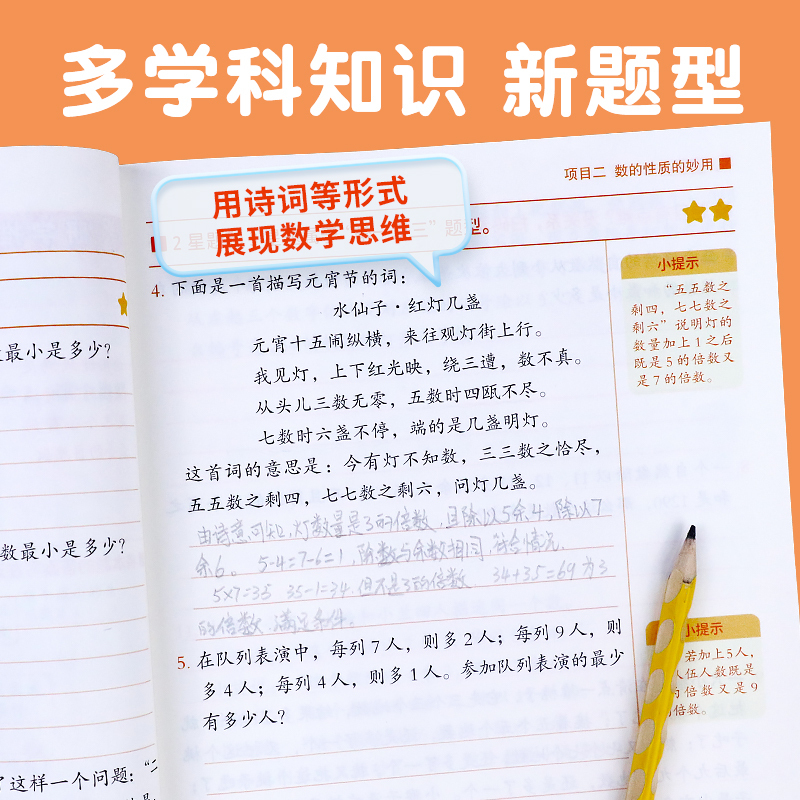 多学科知识 新题型
用诗词等形式
展现数学思维
项目二 数的性质的妙用
2星题
三”题型。
4. 下面是一首描写元宵节的词：
水仙子·红灯几盏
元宵十五闹纵横，来往观灯街上行。
我见灯，上下红光映，绕三遭，数不真。
从头儿三数无零，五数时四瓯不尽。
七数时六盏不停，端的是几盏明灯。
这首词的意思是：今有灯不知数，三三数之恰尽，
五五数之剩四，七七数之剩六，问灯几盏。
由诗意可知，灯数量是3的倍数，且除以5余4，除以7
余6。 5-4=7-6=1，除数与余数相同，符合情况
5×7=35 35-1=34，但不是3的倍数 34+35=69为3
的倍数，满足条件。
5. 在队列表演中，每列7人，则多2人；每列9人，则
多4人；每列4人，则多1人。参加队列表演的最少
有多少人？
小提示
“五五数之
剩四，七七数之
剩六”说明灯的
数量加上1之后
既是5的倍数又
是7的倍数。
小提示
若加上5人，
人伍人数既是
的倍数又是9
倍数。
最小是多少？
数最小是多少？
这样一个问题：“二